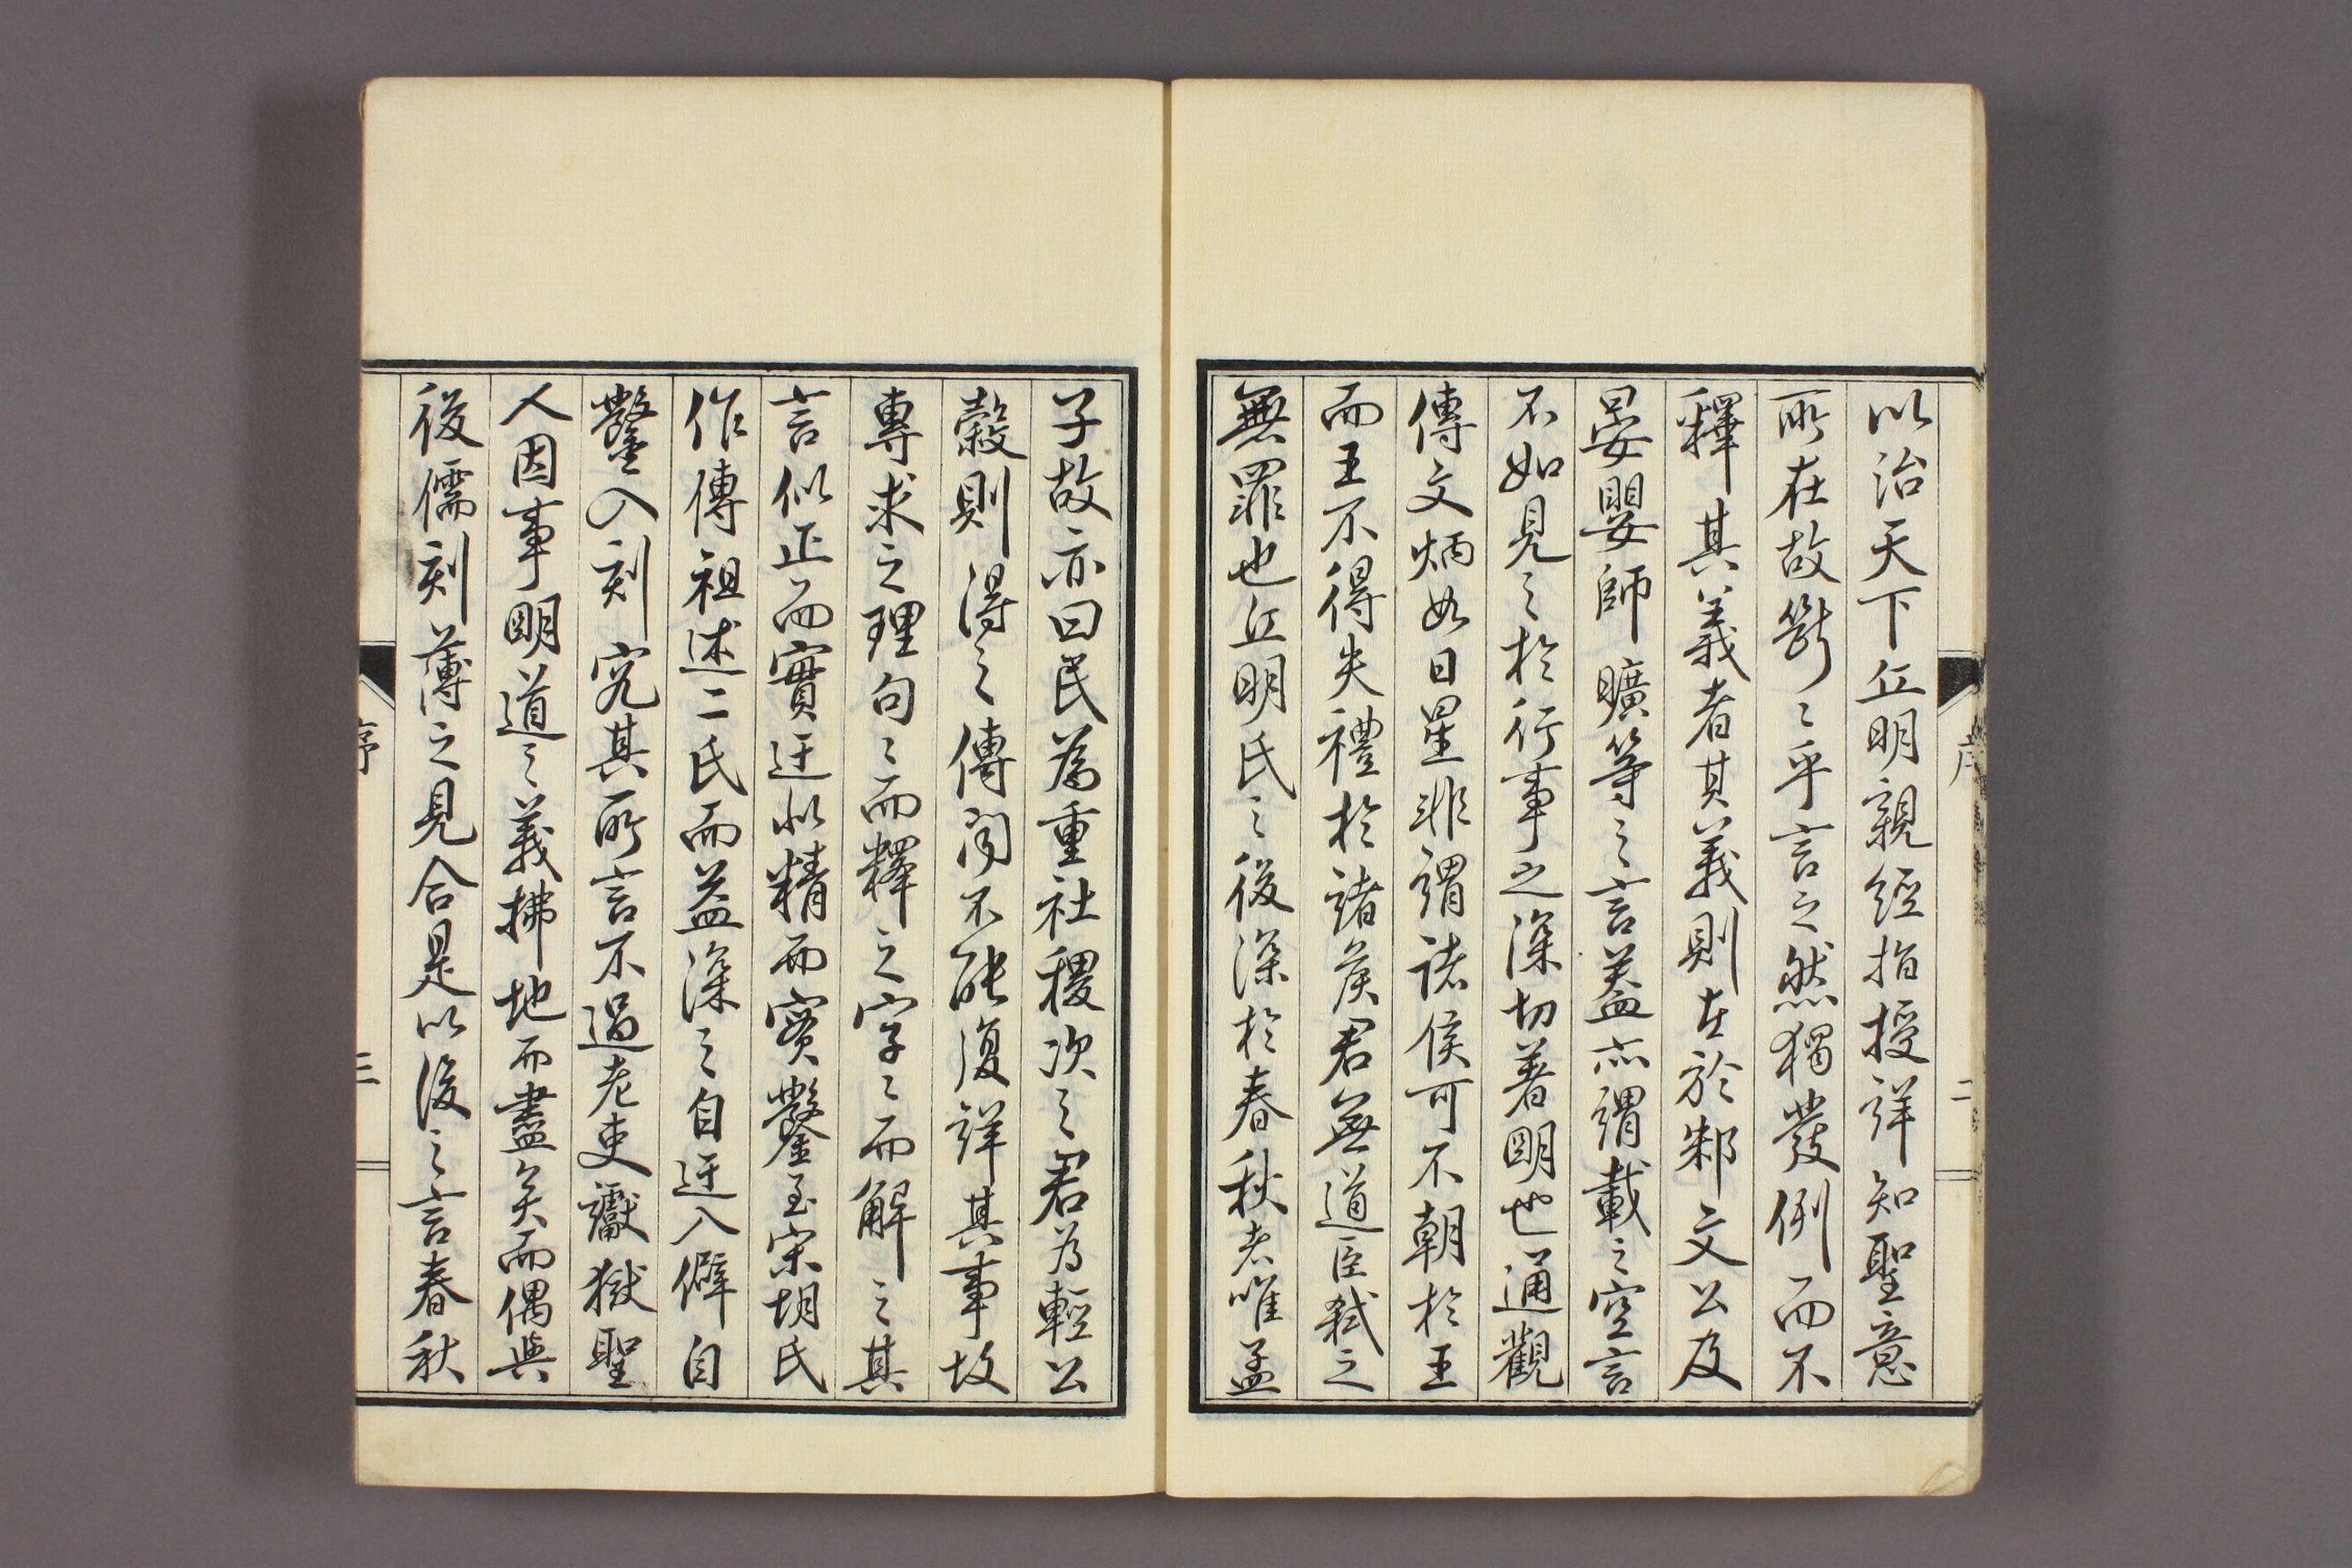 以治天下丘明親經指授詳知聖意
所在故斷〻乎言之然獨發例而不
釋其義者其義則在於邾文公及
晏嬰師曠等之言蓋亦謂載之空言
不如見之於行事之深切著明也通觀
傳文炳如日星非謂諸侯可不朝於王
而王不得失禮於諸侯君無道臣弑之
無罪也丘明氏之後深於春秋者唯孟
子故亦曰民為重社稷次之君為輕公
穀則得之傳聞不能復詳其事故
專求之理句〻而釋之字〻而解之其
言似正而實迂似精而實鑿至宋胡氏
作傳祖述二氏而益深之自迂入僻自
鑿入刻究其所言不過老吏讞獄聖
人因事明道之義拂地而盡矣而偶與
後儒刻薄之見合是以後之言春秋
序
二
三